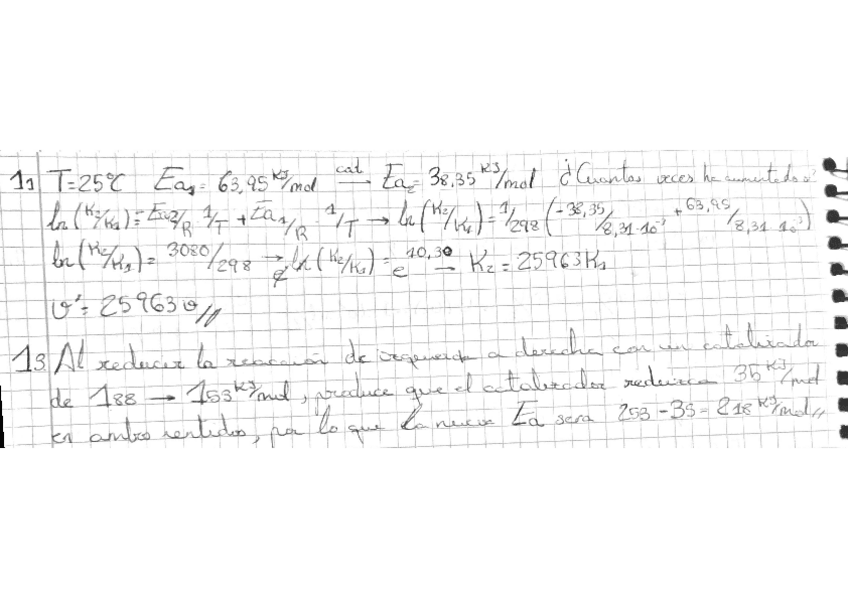 11 T=25ºC Ea₁= 63,95 KJ/mol cat → Ea₂= 38,35 KJ/mol ¿Cuantas veces ha aumentado v?
ln(K₂/K₁)= Ea₂/R · 1/T + Ea₁/R · 1/T → ln(K₂/K₁)= 1/298 (-38,35/8,31·10⁻³ + 63,95/8,31·10⁻³)
ln(K₂/K₁)= 3080/298 → ln(K₂/K₁) = e^10,30 → K₂= 25963K₁
v'= 25963 v//
13 Al reducir la reacción de izquierda a derecha con un catalizador
de 188 → 153 KJ/mol, produce que el catalizador reduzca 35 KJ/mol
en ambos sentidos, por lo que la nueva Ea sera 253-35= 218 KJ/mol//